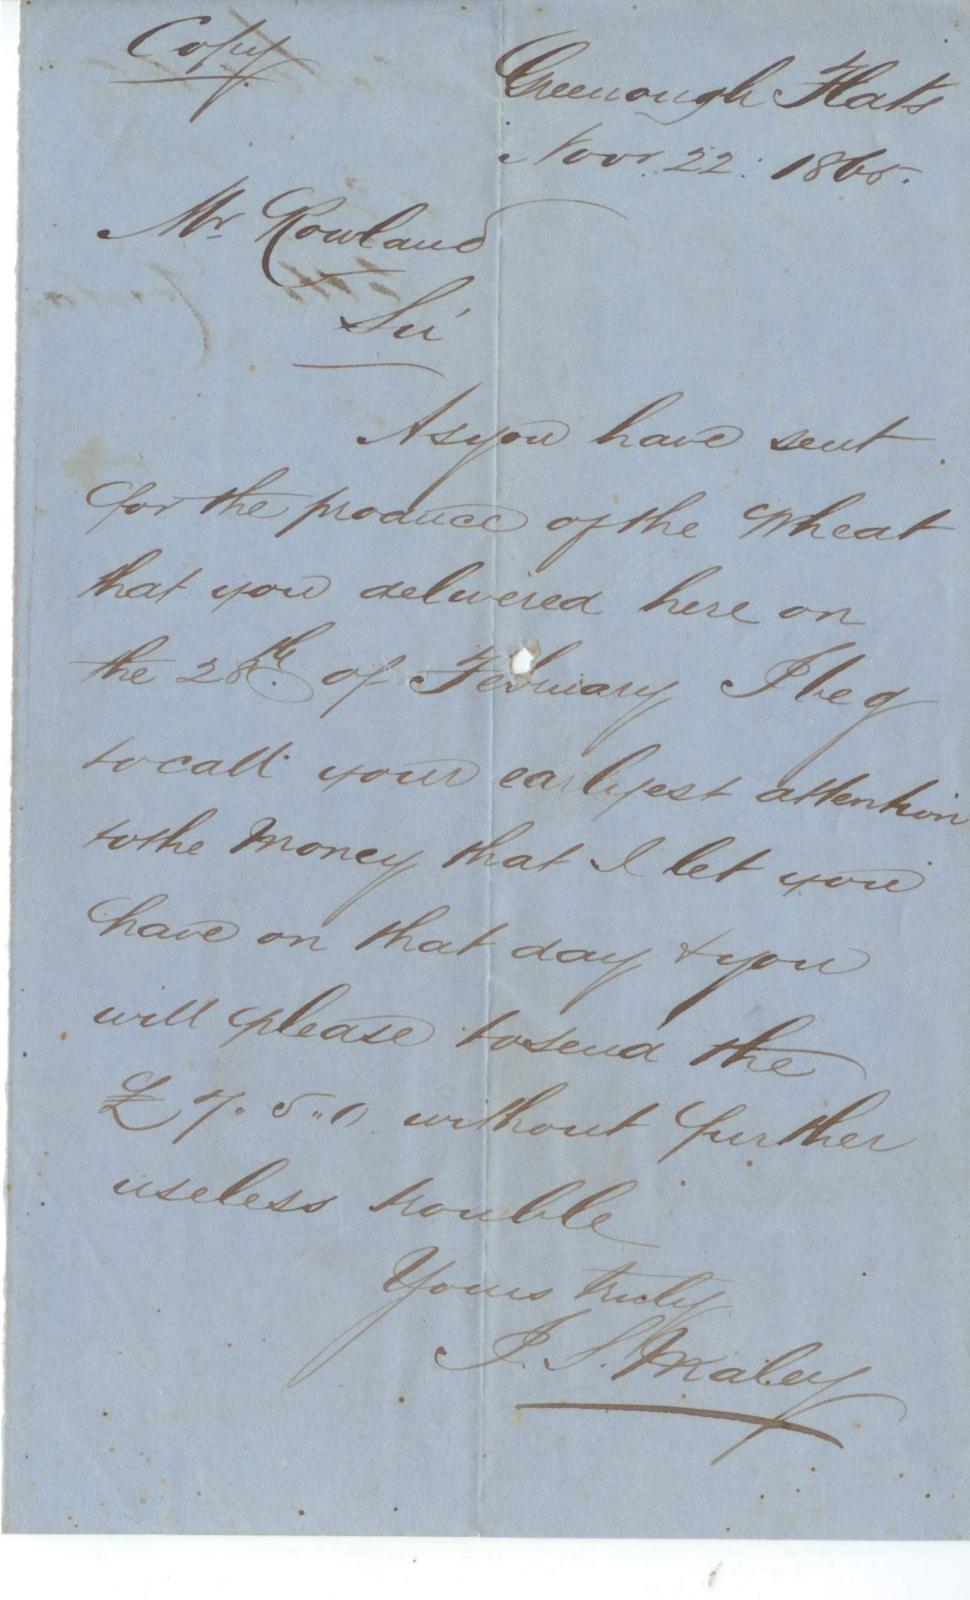 Copy.
Greenough Flats
Novr. 22: 1865.
Mr. Rowland
Sir
As you have sent
for the produce of the Wheat
that you delivered here on
the 28th. of February I beg
to call your earlyest attention
to the Money that I let you
have on that day & you
will please to send the
£7.5.0 without further
useless trouble
Yours truly
J. S. Maley